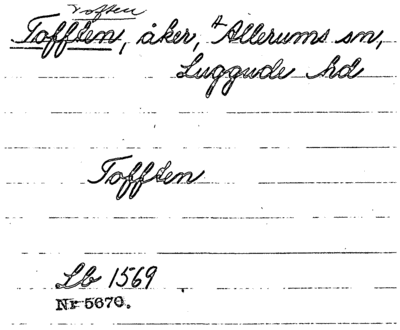 Toften
Tofften, åker, Allerums sn,
Luggude hd
Tofften
Lb 1569
Nr 5670.